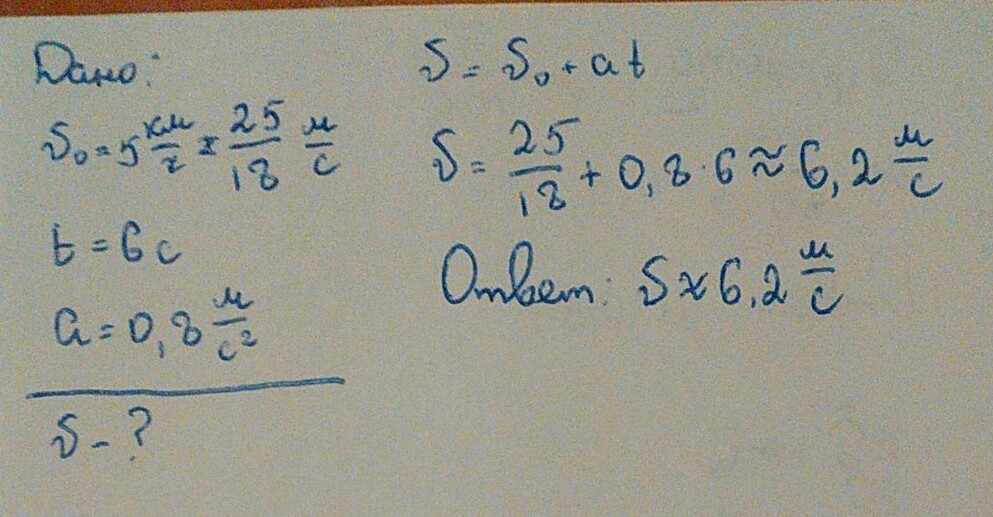 Дано:
υ₀ = 5 км/ч = 25/18 м/с
t = 6 с
a = 0,8 м/с²
υ - ?
υ = υ₀ + at
υ = 25/18 + 0,8 · 6 ≈ 6,2 м/с
Ответ: υ ≈ 6,2 м/с